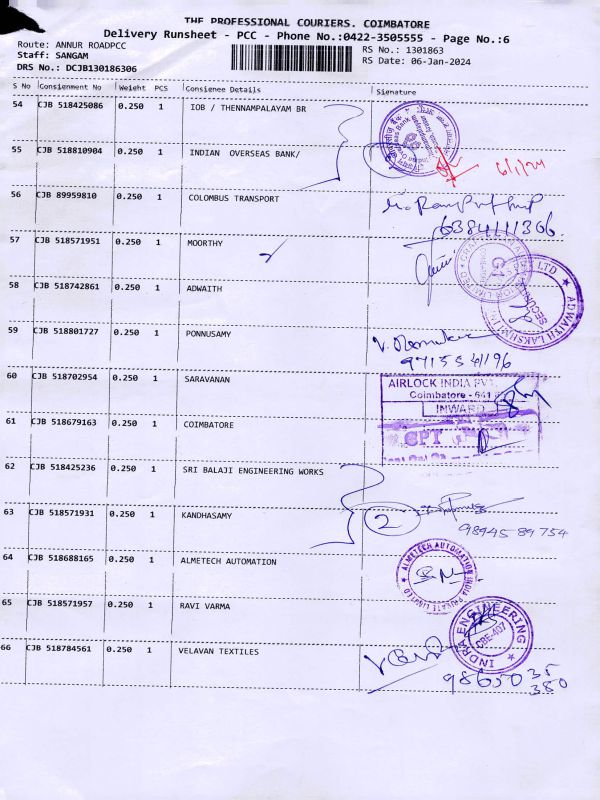 THE PROFESSIONAL COURIERS. COIMBATORE
Delivery Runsheet - PCC - Phone No.:0422-3505555 - Page No.:6
Route: ANNUR ROADPCC
Staff: SANGAM
DRS No.: DCJB130186306
RS No.: 1301863
RS Date: 06-Jan-2024
S No Consignment No Weight PCS Consignee Details Signature
54 CJB 518425086 0.250 1 IOB / THENNAMPALAYAM BR
55 CJB 518810904 0.250 1 INDIAN OVERSEAS BANK/
6/1/24
56 CJB 89959810 0.250 1 COLOMBUS TRANSPORT
6384111366
57 CJB 518571951 0.250 1 MOORTHY
58 CJB 518742861 0.250 1 ADWAITH
ADWAITH LAKSHMI
SECURITY
59 CJB 518801727 0.250 1 PONNUSAMY
9715541196
60 CJB 518702954 0.250 1 SARAVANAN
AIRLOCK INDIA PVT.
Coimbatore - 641
INWARD
61 CJB 518679163 0.250 1 COIMBATORE
62 CJB 518425236 0.250 1 SRI BALAJI ENGINEERING WORKS
63 CJB 518571931 0.250 1 KANDHASAMY
2
9894589754
64 CJB 518688165 0.250 1 ALMETECH AUTOMATION
ALMETECH AUTOMATION INDIA PRIVATE LIMITED
65 CJB 518571957 0.250 1 RAVI VARMA
INDRA ENGINEERING
CBE-407
66 CJB 518784561 0.250 1 VELAVAN TEXTILES
98650 35
380